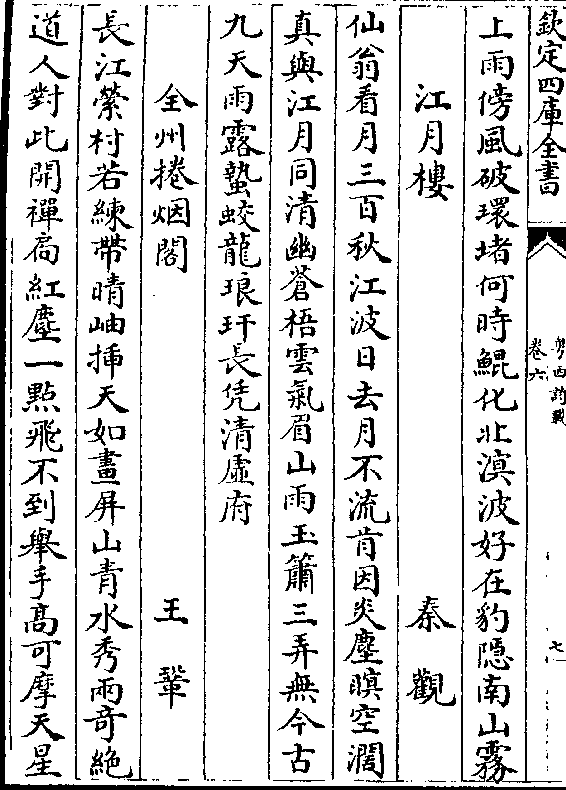 欽定四庫全書
卷六
粵西詩載
七
上雨傍風破環堵何時鯤化北溟波好在豹隱南山霧
江月樓 秦觀
仙翁看月三百秋江波日去月不流肯因炎塵瞑空濶
真與江月同清幽蒼梧雲氣眉山雨玉簫三弄無今古
九天雨露蟄蛟龍琅玕長凭清虛府
全州捲烟閣 王鞏
長江縈村若練帶晴岫挿天如畫屏山青水秀兩竒絶
道人對此開禪扃紅塵一點飛不到舉手髙可摩天星